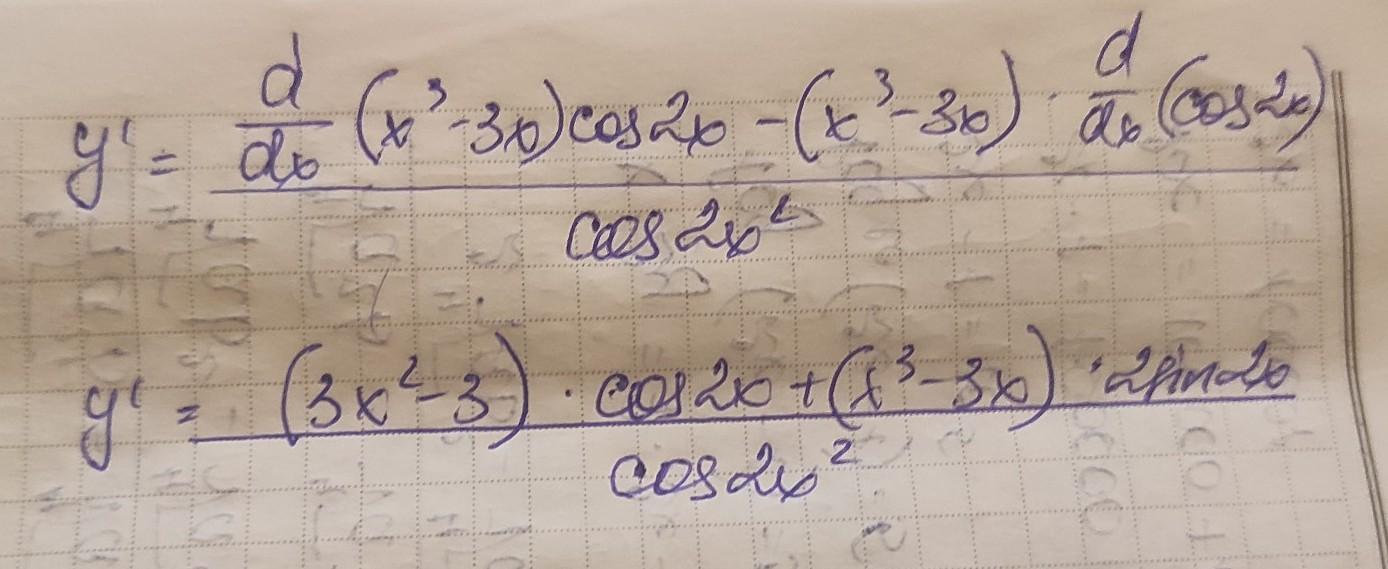 y' = d/dx (x³-3x)cos2x - (x³-3x) · d/dx (cos2x) / cos2x²
y' = (3x²-3) · cos2x + (x³-3x) · 2sin2x / cos2x²